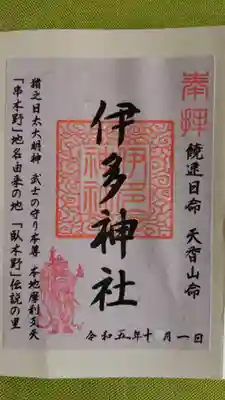 奉拝
饒速日命 天香山命
伊多神社
猪之日太大明神 武士の守り本尊 本地摩利支天
「串木野」地名由来の地 「臥木野」伝説の里
令和五年十 月一日